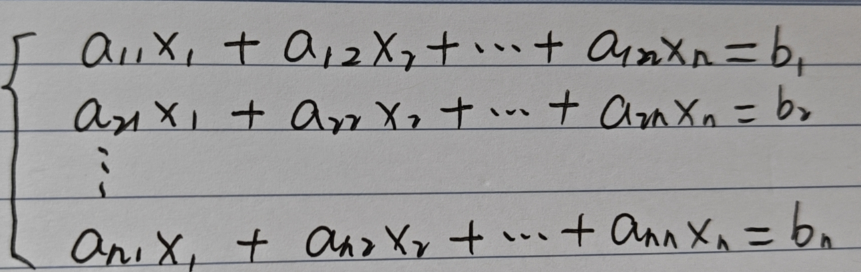 a₁₁x₁ + a₁₂x₂ + ⋯ + a₁ₙxₙ = b₁
a₂₁x₁ + a₂₂x₂ + ⋯ + a₂ₙxₙ = b₂
⋮
aₙ₁x₁ + aₙ₂x₂ + ⋯ + aₙₙxₙ = bₙ